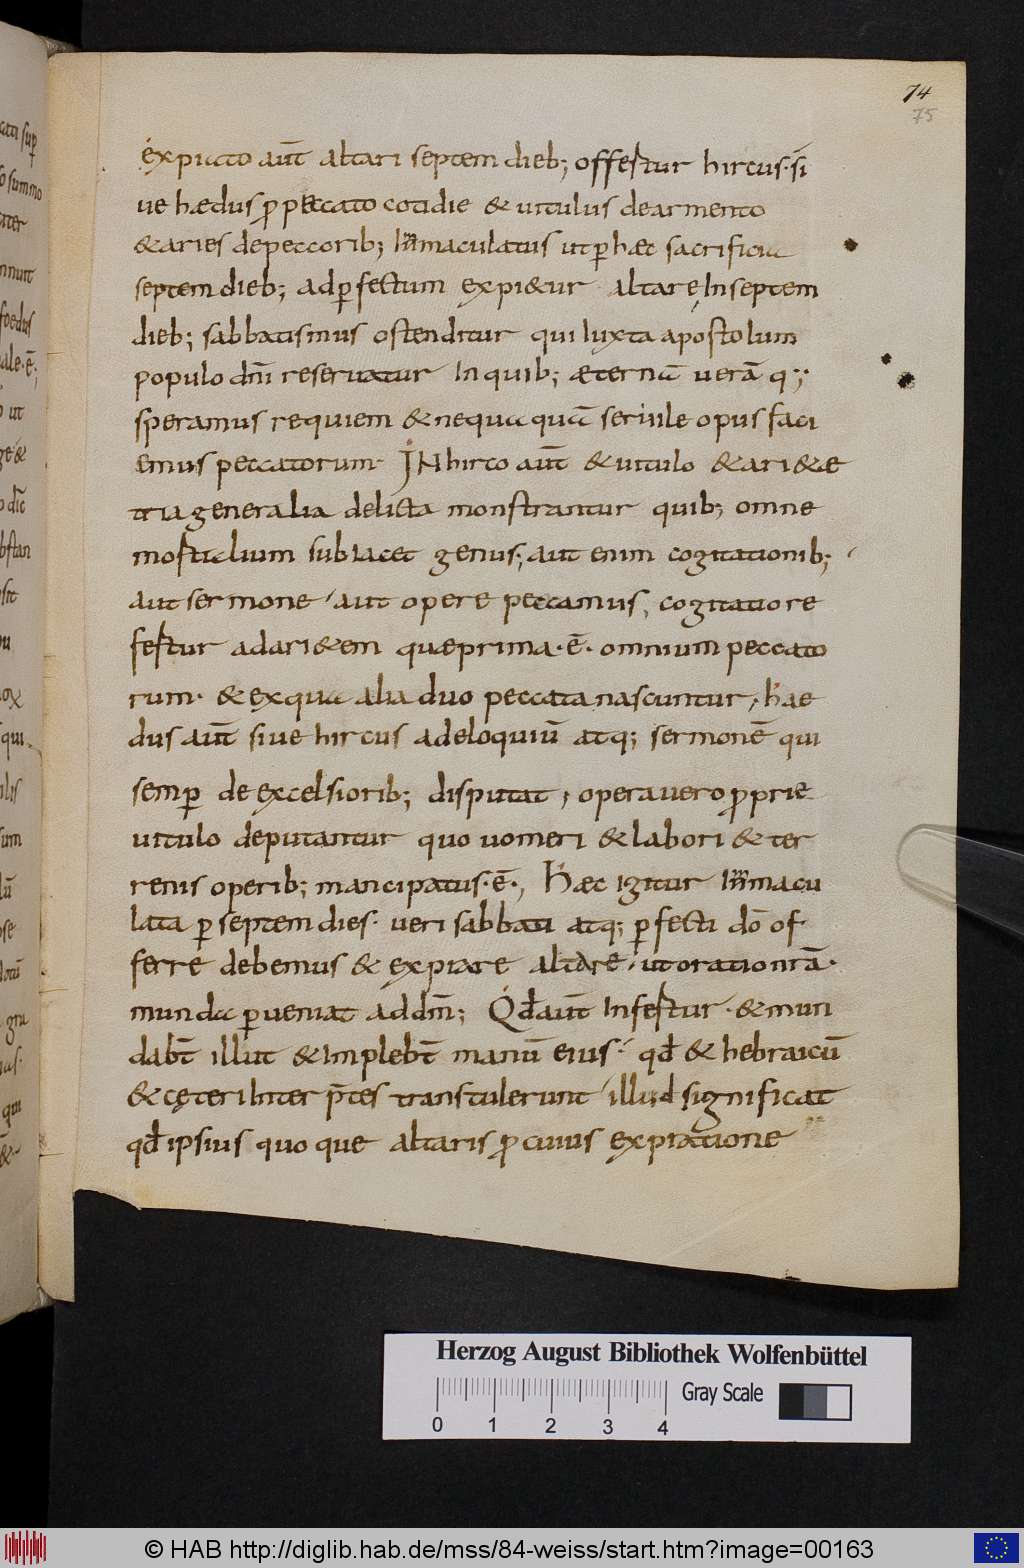 74
75
expiato aūt altari septem dieb; offertur hircus· si
ue hædus ꝓ peccato cotidie & uitulus de armento
& aries de peccorib; Inmaculatus ut ꝑ hæc sacrificia
septem dieb; ad ꝑfectum expi&ur altarę, In septem
dieb; sabbatismus ostenditur qui Iuxta apostolum
populo dn̄i reseruatur In quib; æternā uerā q;
speramus requiem & nequa quā seruile opus faci
emus peccatorum· IN hirco aūt & uitulo & ari&e
tria generalia delicta monstrantur quib; omne
mortalium subiacet genus; aut enim cogitationib;
aut sermone aut opere peccamus, cogitatio re
fertur ad ari&em quæ prima·ē· omnium peccato
rum· & ex qua alia duo peccata nascuntur, hae
dus aūt siue hircus ad eloquiū atq; sermonē qui
semꝑ de excelsiorib; disputat, opera uero ꝓprie
uitulo deputantur quo uomeri & labori & ter
renis operib; mancipatus·ē·, Hæc igitur Inmacu
lata ꝑ septem dies· ueri sabbati atq; ꝑfecti dō of
ferre debemus & expiare altare, ut oratio nr̄a·
munda ꝑueniat ad dm̄; Qđ aūt Infertur· & mun
dabt̄ illut & Implebt̄ manū eius· qđ & hebraicū
& cęteri Inter p̄tes transtulerunt illud significat
qđ ipsius quo que altaris ꝓ cuius expiatione
Herzog August Bibliothek Wolfenbüttel
Gray Scale
0 1 2 3 4
© HAB http://diglib.hab.de/mss/84-weiss/start.htm?image=00163